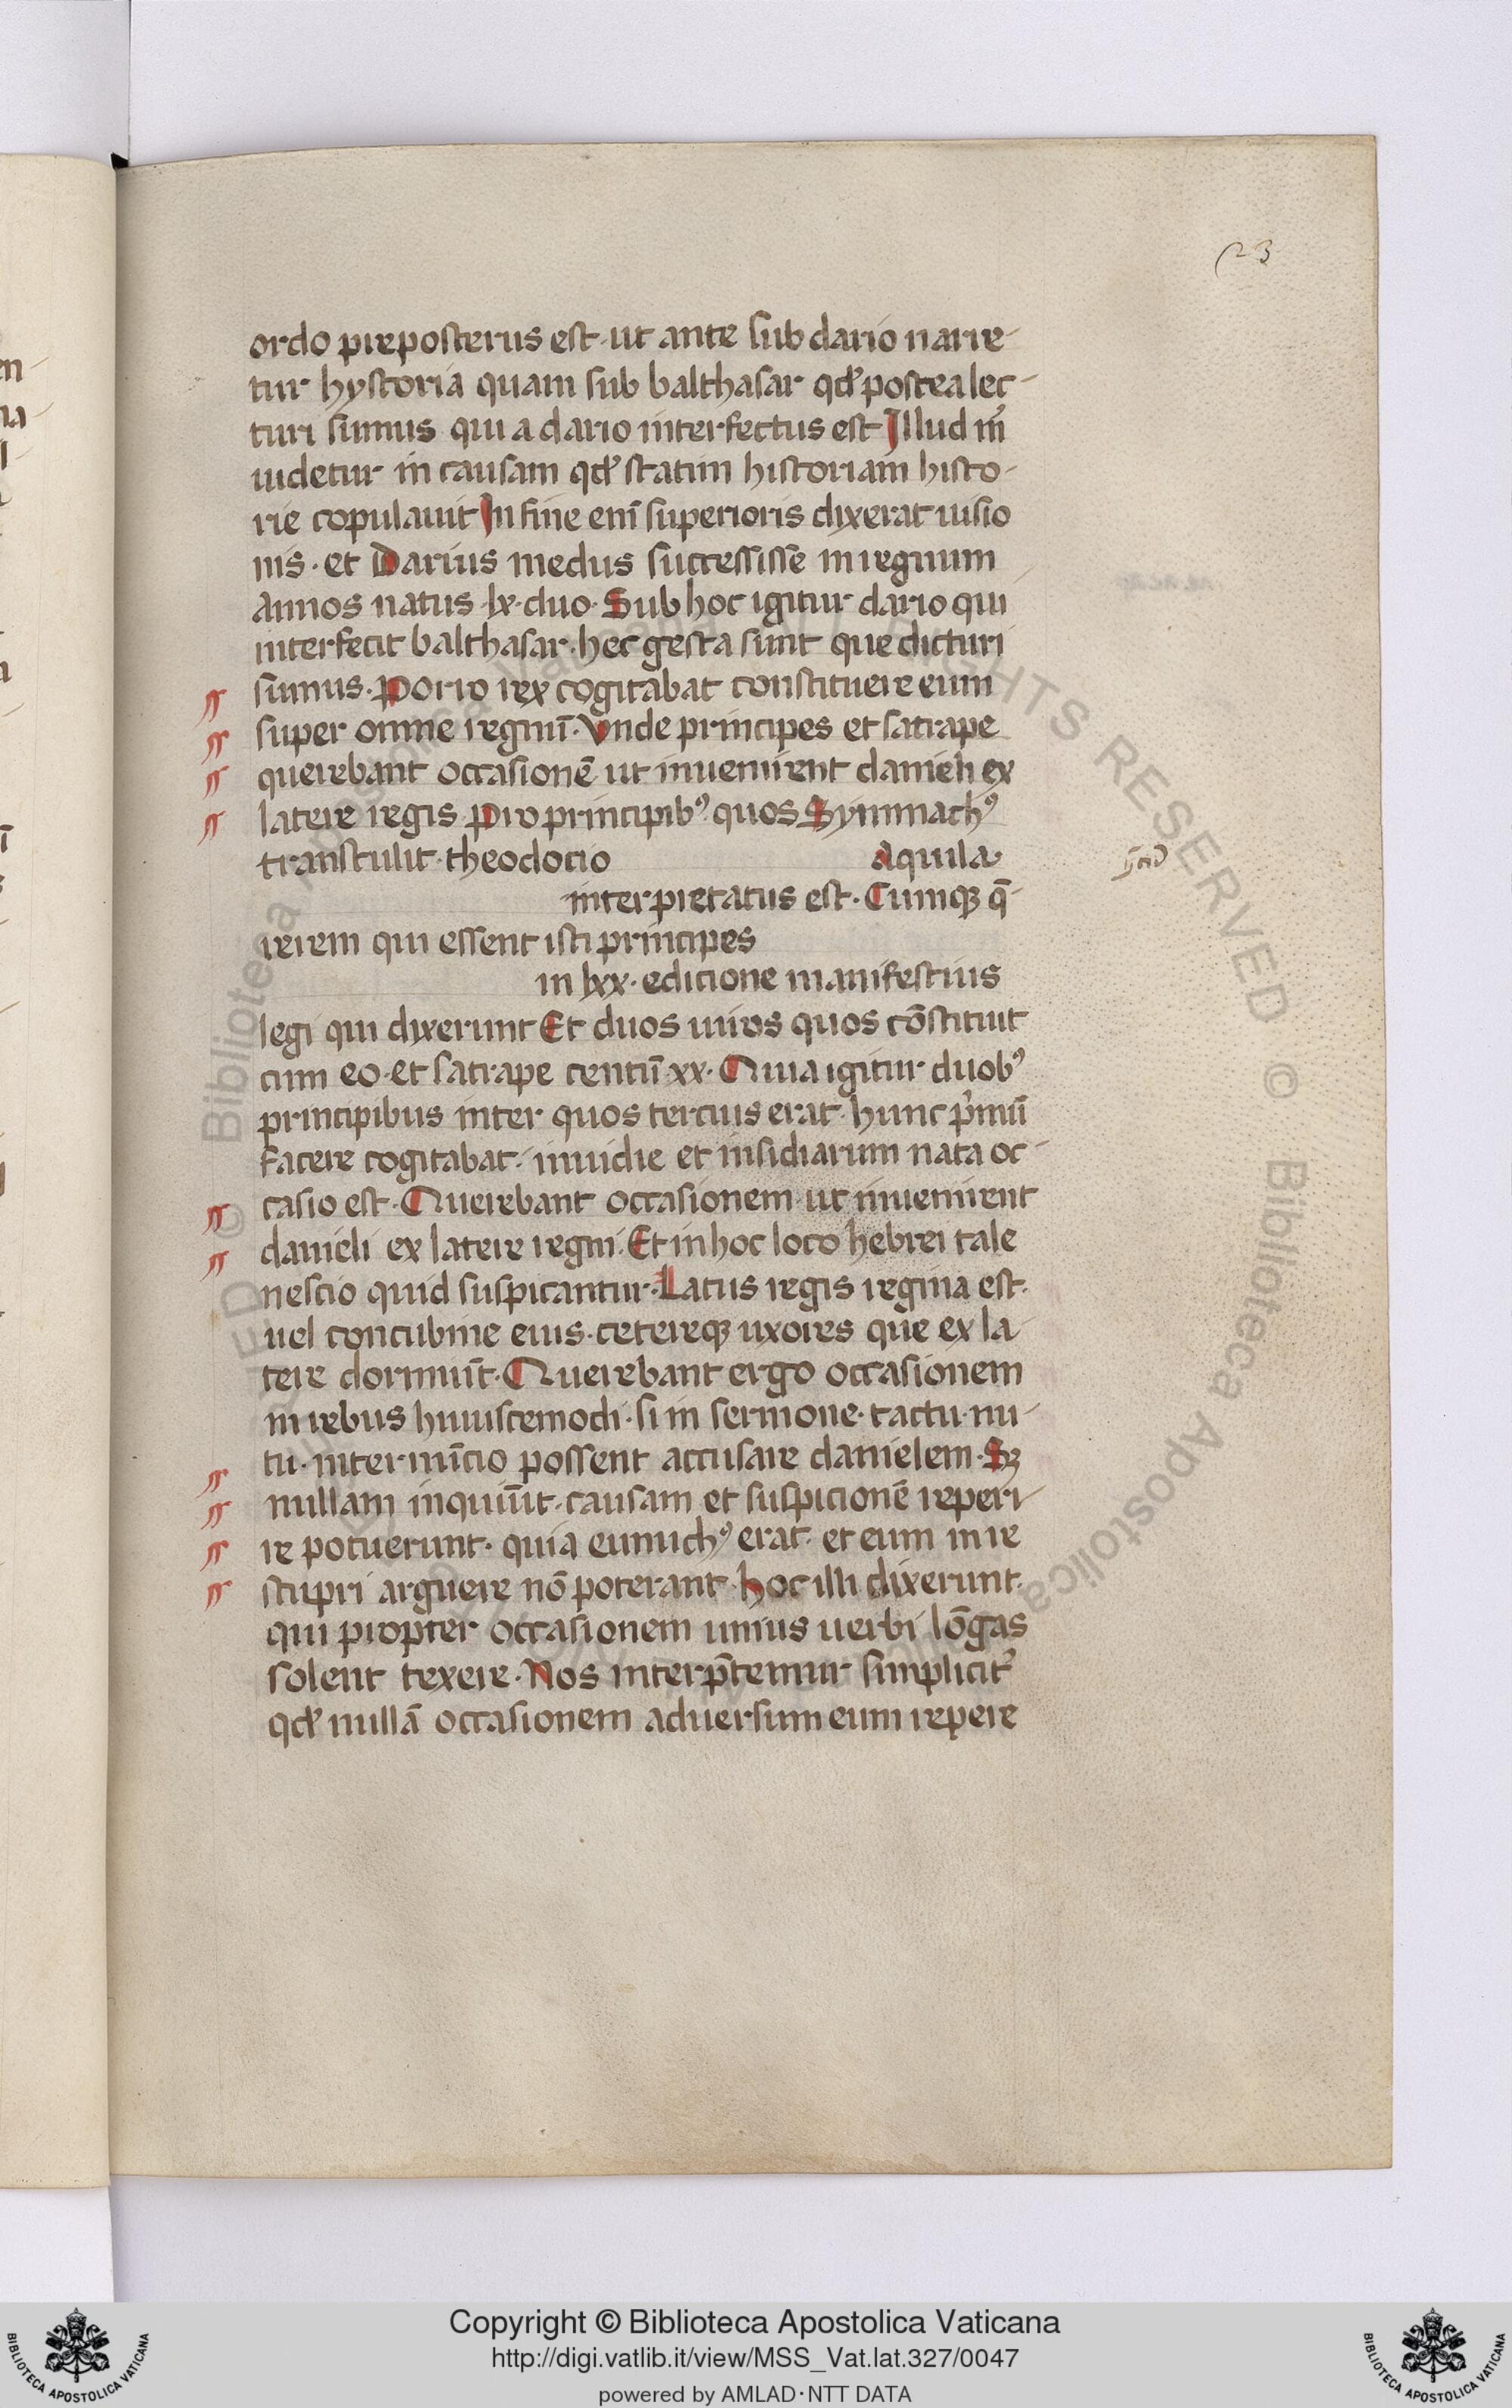 23
ordo preposterus est · ut ante sub dario narre-
tur hystoria quam sub balthasar qđ postea lec-
turi sumus qui a dario interfectus est Illud m̄
uidetur in causam qđ statim historiam histo-
rie copulauit In fine eni͂ superioris dixerat uisio
nis · et Darius medus successisse in regnum
annos natus · lx · duo · Sub hoc igitur dario qui
interfecit balthasar · hec gesta sunt que dicturi
sumus · Porro rex cogitabat constituere eum
super omne regnū · Vnde principes et satrape
querebant occasionē ut inuenirent danieli ex
latere regis · Pro principibꝰ quos Symmachꝰ
transtulit · theodocio Aquila
interpretatus est · Cumqꝫ q̄-
rerem qui essent isti principes
in lxx · editione manifestius
legi qui dixerunt Et duos uiros quos cōstituit
cum eo · et satrape centū · xx · Quia igitur duobꝰ
principibus inter quos tercius erat · hunc p̍mū
facere cogitabat · inuidie et insidiarum nata oc-
casio est · Querebant occasionem ut inuenirent
danieli ex latere regni · Et in hoc loco hebrei tale
nescio quid suspicantur · Latus regis regina est ·
uel concubine eius · cetereqꝫ uxores que ex la-
tere dormiūt · Querebant ergo occasionem
in rebus huiuscemodi · si in sermone · tactu · nu-
tu · internūcio possent accusare danielem · Sꝫ
nullam inquiūt · causam et suspicionē reperi-
re potuerunt · quia eunuchꝰ erat · et eum in re
stupri arguere nō poterant · hoc illi dixerunt ·
qui propter occasionem unius uerbi lōgas
solent texere · Nos interp̄temur simplicit̉
qđ nullā occasionem aduersum eum repere
Copyright © Biblioteca Apostolica Vaticana
http://digi.vatlib.it/view/MSS_Vat.lat.327/0047
powered by AMLAD·NTT DATA